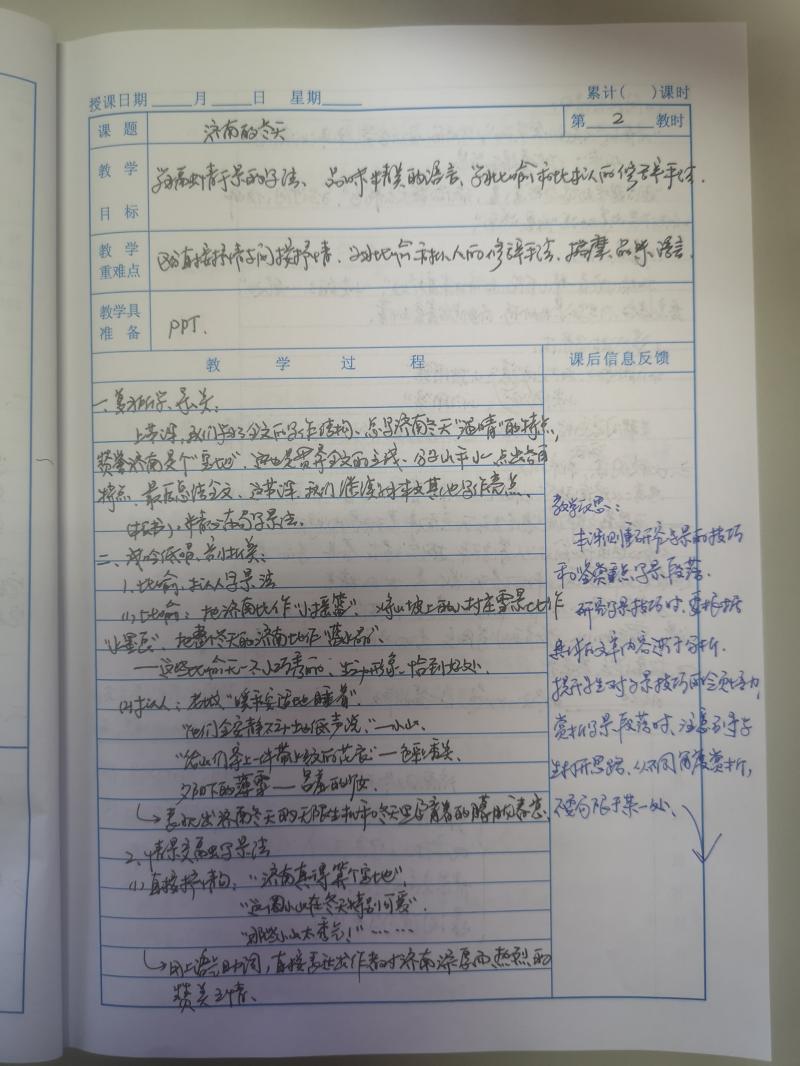 授课日期____月____日 星期____ 累计( )课时
课题 济南的冬天 第 2 教时
教学目标 学习寓情于景的写法、品味精美的语言、学习比喻和比拟人的修辞手法.
教学重难点 区分直接抒情与间接抒情、学习比喻和拟人的修辞手法、揣摩、品味语言.
教学具准备 PPT.
教学过程 课后信息反馈
一、复习所学,导入:
上节课,我们学习了全文的写作结构、总写济南冬天“温晴”的特点,
赞誉济南是个“宝地”,这也是贯穿全文的主线、分写山和水,点出各自
特点、最后总结全文、这节课,我们继续对本文其他写作亮点、
(板书)、布局写景法.
二、浅吟低唱、赏析美:
1.比喻、拟人写景法
(1)比喻:把济南比作“小摇篮”、将山坡上的小村庄雪景比作
“水墨画”、把整个冬天的济南比作“蓝水晶”.
——这些比喻无一不小巧秀丽、生动形象、恰到好处.
(2)拟人:老城“暖和安适地睡着”
“他们全安静不动地低声说”——小山.
“给山们穿上一件带水纹的花衣”——色彩秀美.
夕阳下的薄雪——害羞的少女.
↳表现出济南冬天的无限生机和冬天里孕育着的朦胧春意.
2、情景交融写景法
(1)直接抒情句:“济南真得算个宝地”,
“这圈小山在冬天特别可爱”.
“那些小山太秀气!”……
↳用上语气助词,直接表达出作者对济南深厚而热烈的
赞美之情.
教学反思:
本课侧重研究写景的技巧
和鉴赏重点写景段落.
研究写景技巧时,要根据
具体的文章内容进行分析.
提升学生对写景技巧的领会能力,
赏析写景段落时,注意引导学
生打开思路、从不同角度赏析,
不要局限于某一处.